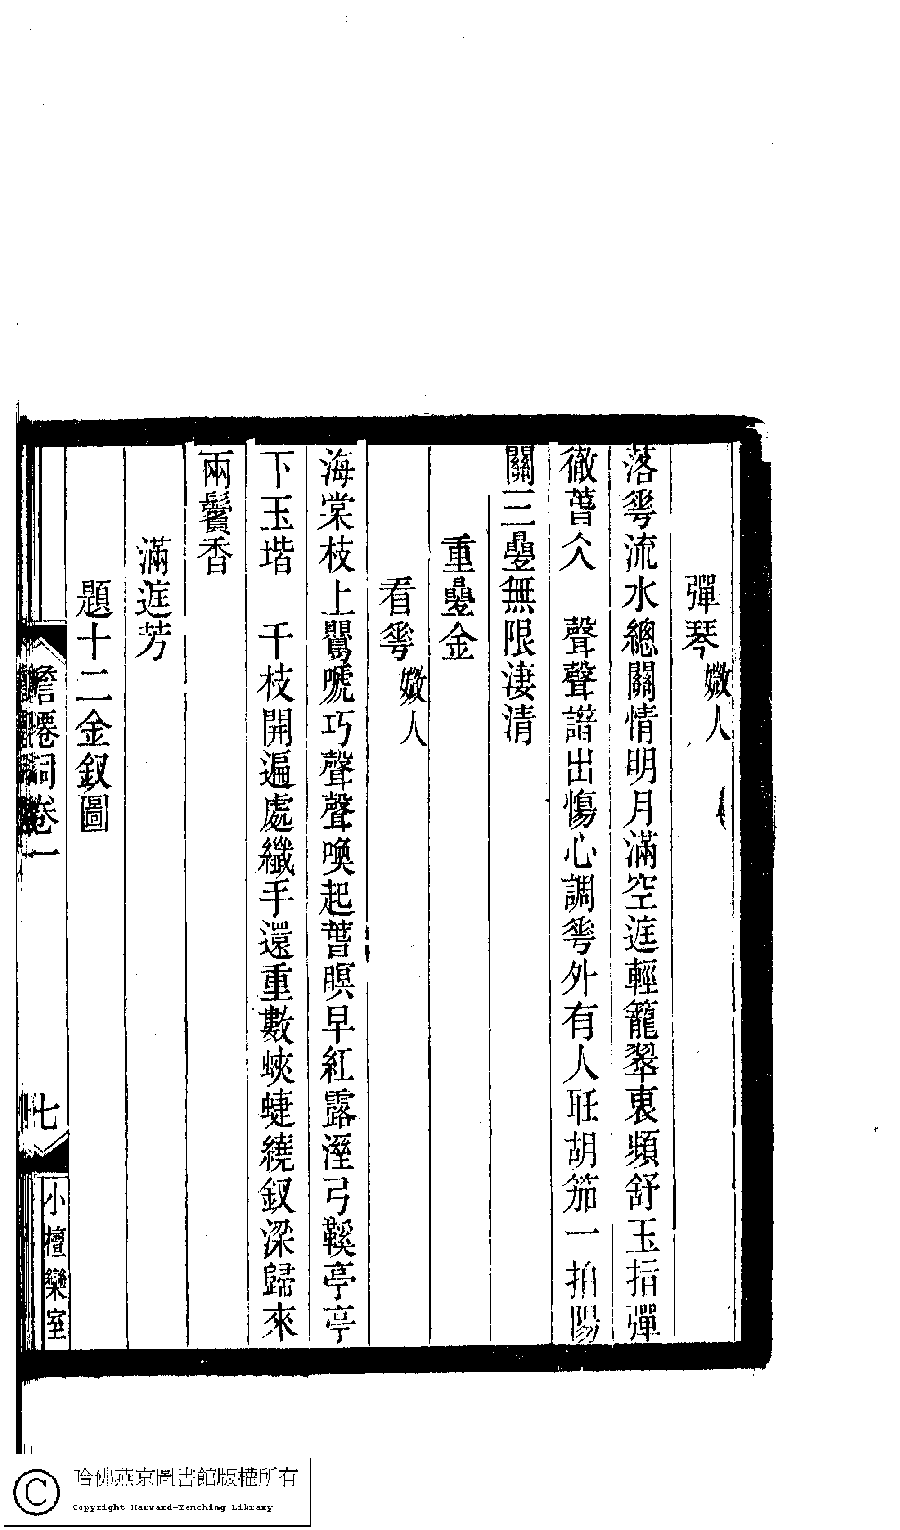 彈琴 媺人
落蕚流水總關情明月滿空庭輕籠翠袖頻舒玉指彈
徹萅仌　聲聲譜出傷心調蕚外有人聽胡笳一拍陽
關三疊無限淒清
重疊金
看蕚 媺人
海棠枝上鸎唬巧聲聲喚起萅瞑早紅露溼弓鞵亭亭
下玉堦　千枝開遍處纖手還重數蛺蜨繞釵梁歸來
兩鬢香
滿庭芳
題十二金釵圖
詞卷一
七
小檀欒室
哈佛燕京圖書館版權所有
Copyright Harvard-Yenching Library